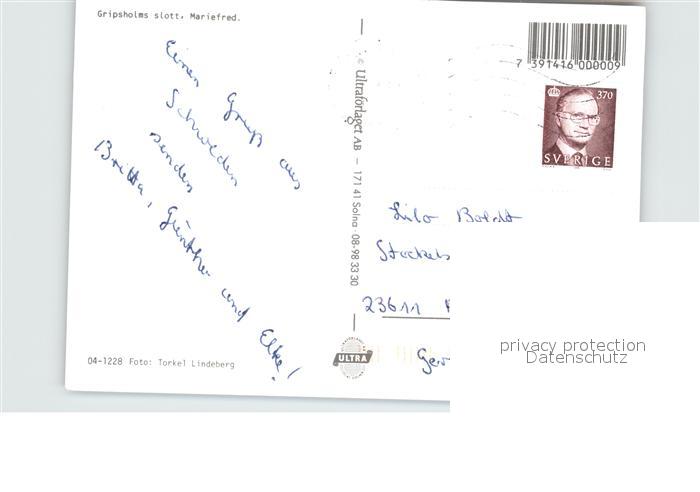 Gripsholms slott, Mariefred.
7 391416 000009
370
SVERIGE
Einen Gruß aus
Schweden
senden
Britta, Günther und Elke!
© Ultraförlaget AB — 171 41 Solna · 08-98 33 30
Lilo Boldt
23611
ULTRA
04-1228 Foto: Torkel Lindeberg
privacy protection
Datenschutz